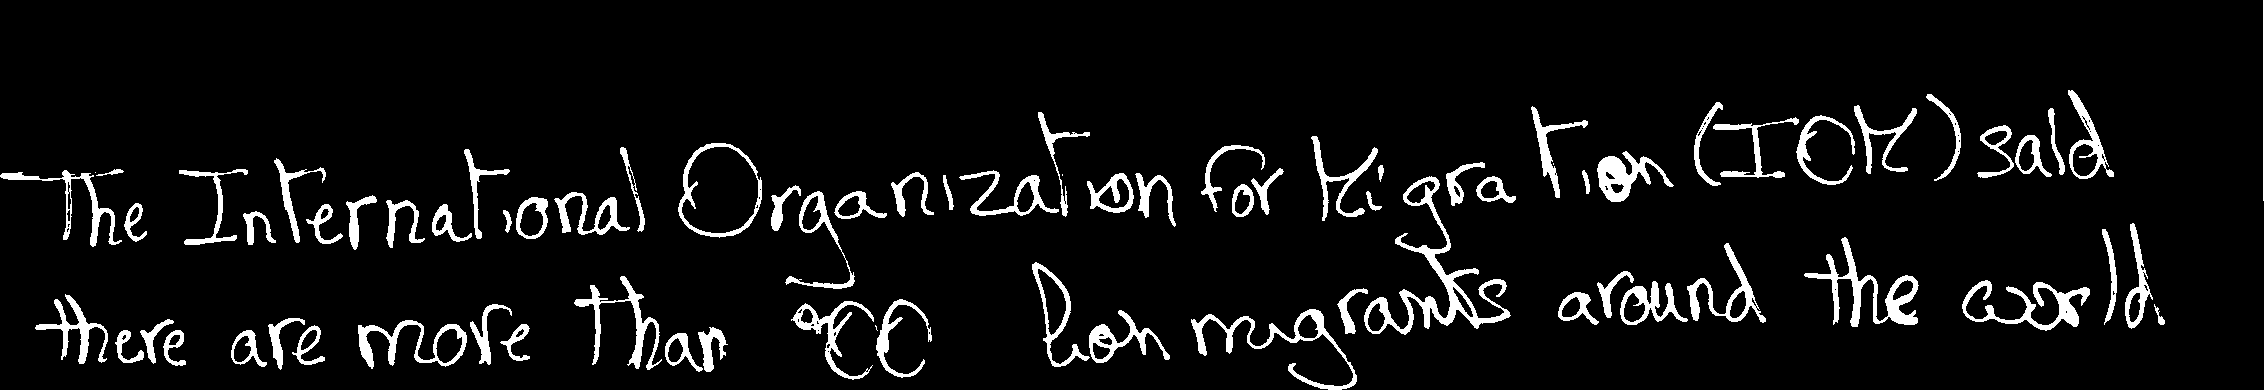 The International Organization for Migration (IOM) said
there are more than migrants around the world